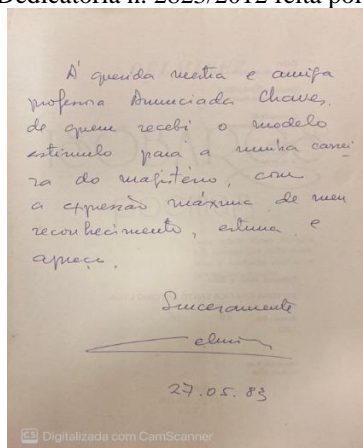 Dedicatória n. 2823/2012 feita por
À querida mestra e amiga
professora Anunciada Chaves,
de quem recebi o modelo
estímulo para a minha carrei
ra do magistério, com
a expressão máxima de meu
reconhecimento, estima e
apreço.
Sinceramente
27.05.83
CS Digitalizada com CamScanner